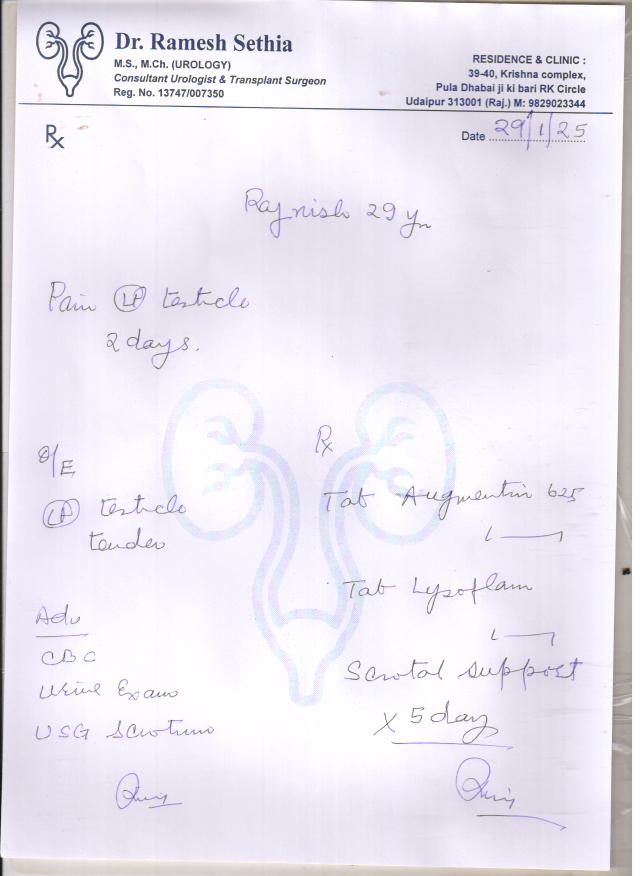 Dr. Ramesh Sethia
M.S., M.Ch. (UROLOGY)
Consultant Urologist & Transplant Surgeon
Reg. No. 13747/007350
RESIDENCE & CLINIC :
39-40, Krishna complex,
Pula Dhabai ji ki bari RK Circle
Udaipur 313001 (Raj.) M: 9829023344
Rx
Date 29/1/25
Rajnish 29 yr
Pain testicle
2 days.
O/E
testicle
tender
Adv
CBC
Urine Exam
USG Scrotum
Rx
Tab Augmentin 625
Tab Lysoflam
Scrotal support
x 5 day